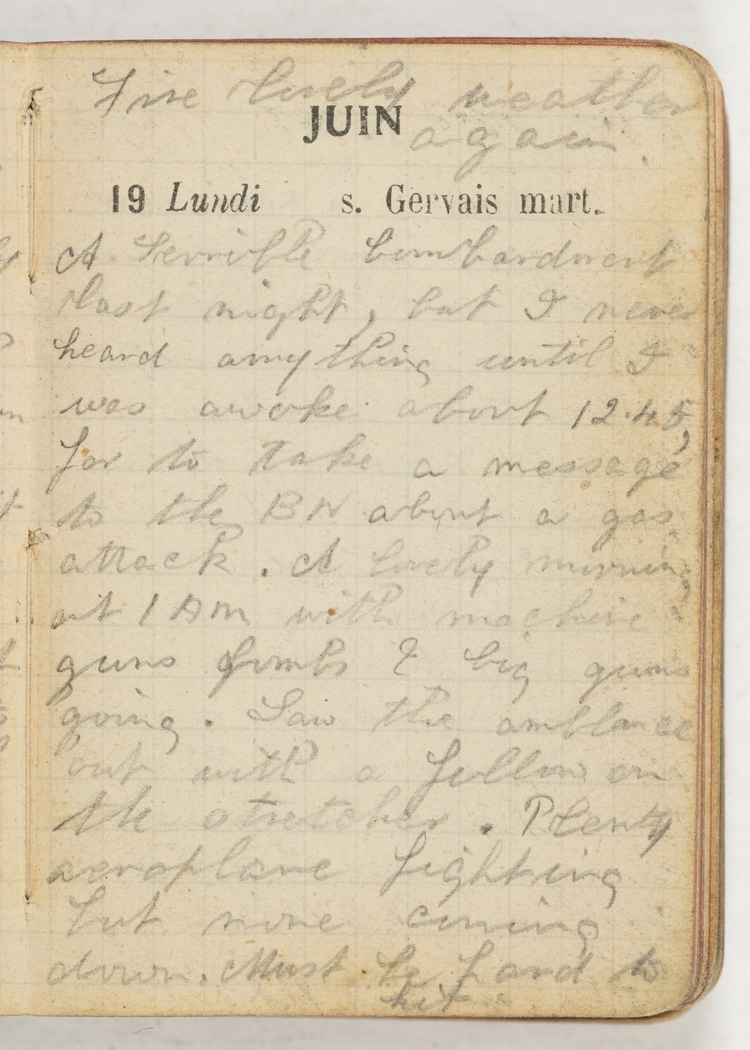 Fine lovely weather
JUIN
again.
19 Lundi s. Gervais mart.
A terrible bombardment
last night, but I never
heard anything until I
was awoke about 12.45,
for to take a message
to the BN about a gas
attack. A lovely morning
at 1 AM with machine
guns bombs & big guns
going. Saw the amblance
out with a fellow on
the stretcher. Plenty
aeroplane fighting
but none coming
down. Must be hard to
hit